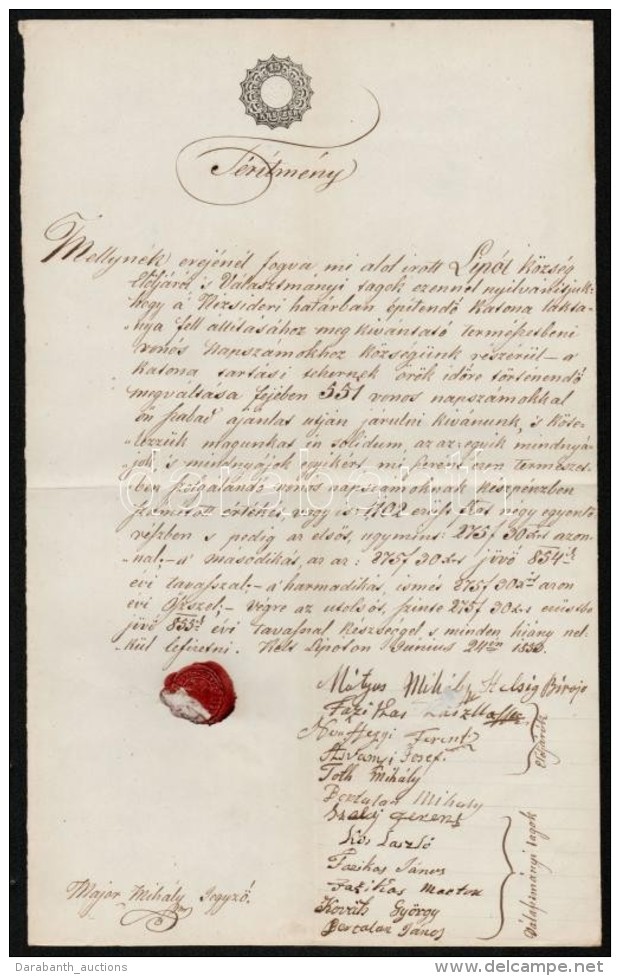 15
KREUZER
Térítmény
Mellynek erejénél fogva mi alol irott Lipót Község
Elöljárói s Választmányi tagok ezennel nyilvánitjuk:
hogy a Nizsideri határban építendő Katona lakta-
„nya fell állitásához meg kivántató természetbeni
vonós napszámokhoz községünk részérül – a
Katona tartási tehernek örök időre történendő
megváltása fejében 551 vonos napszámokkal
ön szabad ajánlat utján járulni kivánunk, s köte-
„lezzük magunkat in solidum, az az: egyik mindnyá-
„jok, s mindnyájok egyikért,
ben szolgálandó vonos napszámoknak készpénzben
értékét, vagy is 1102 négy egyenlő
részben s pedig az elsőt, ugymint: 275f 30 xrt azon-
„nal – a másodikát, az az: 275f 30 xrt jövő 854ik
évi tavasszal – a harmadikát, ismét 275f 30 xrt azon
évi Ősszel – végre az utolsót, szinte 275f 30 xrt ezüstbe
jövő 855k évi tavasszal készséggel s minden hiány nel-
„kül lefizetni. Kelt Lipoton Junius 24én 1853.
Mátyus Mihály Helsig Birája
Fazikas László
Ferentz
Asvanyi Josef
Toth Mihály
Bertalan Mihaly
Szaly Ferenz
Kós László
Fazikas János
Fazikas Marton
Kováts György
Bertalan János
Elöljárók
Válasptmányi tagok
Major Mihály Jegyző.
darabanth
Darabanth_auctions
http://www.delcampe.net